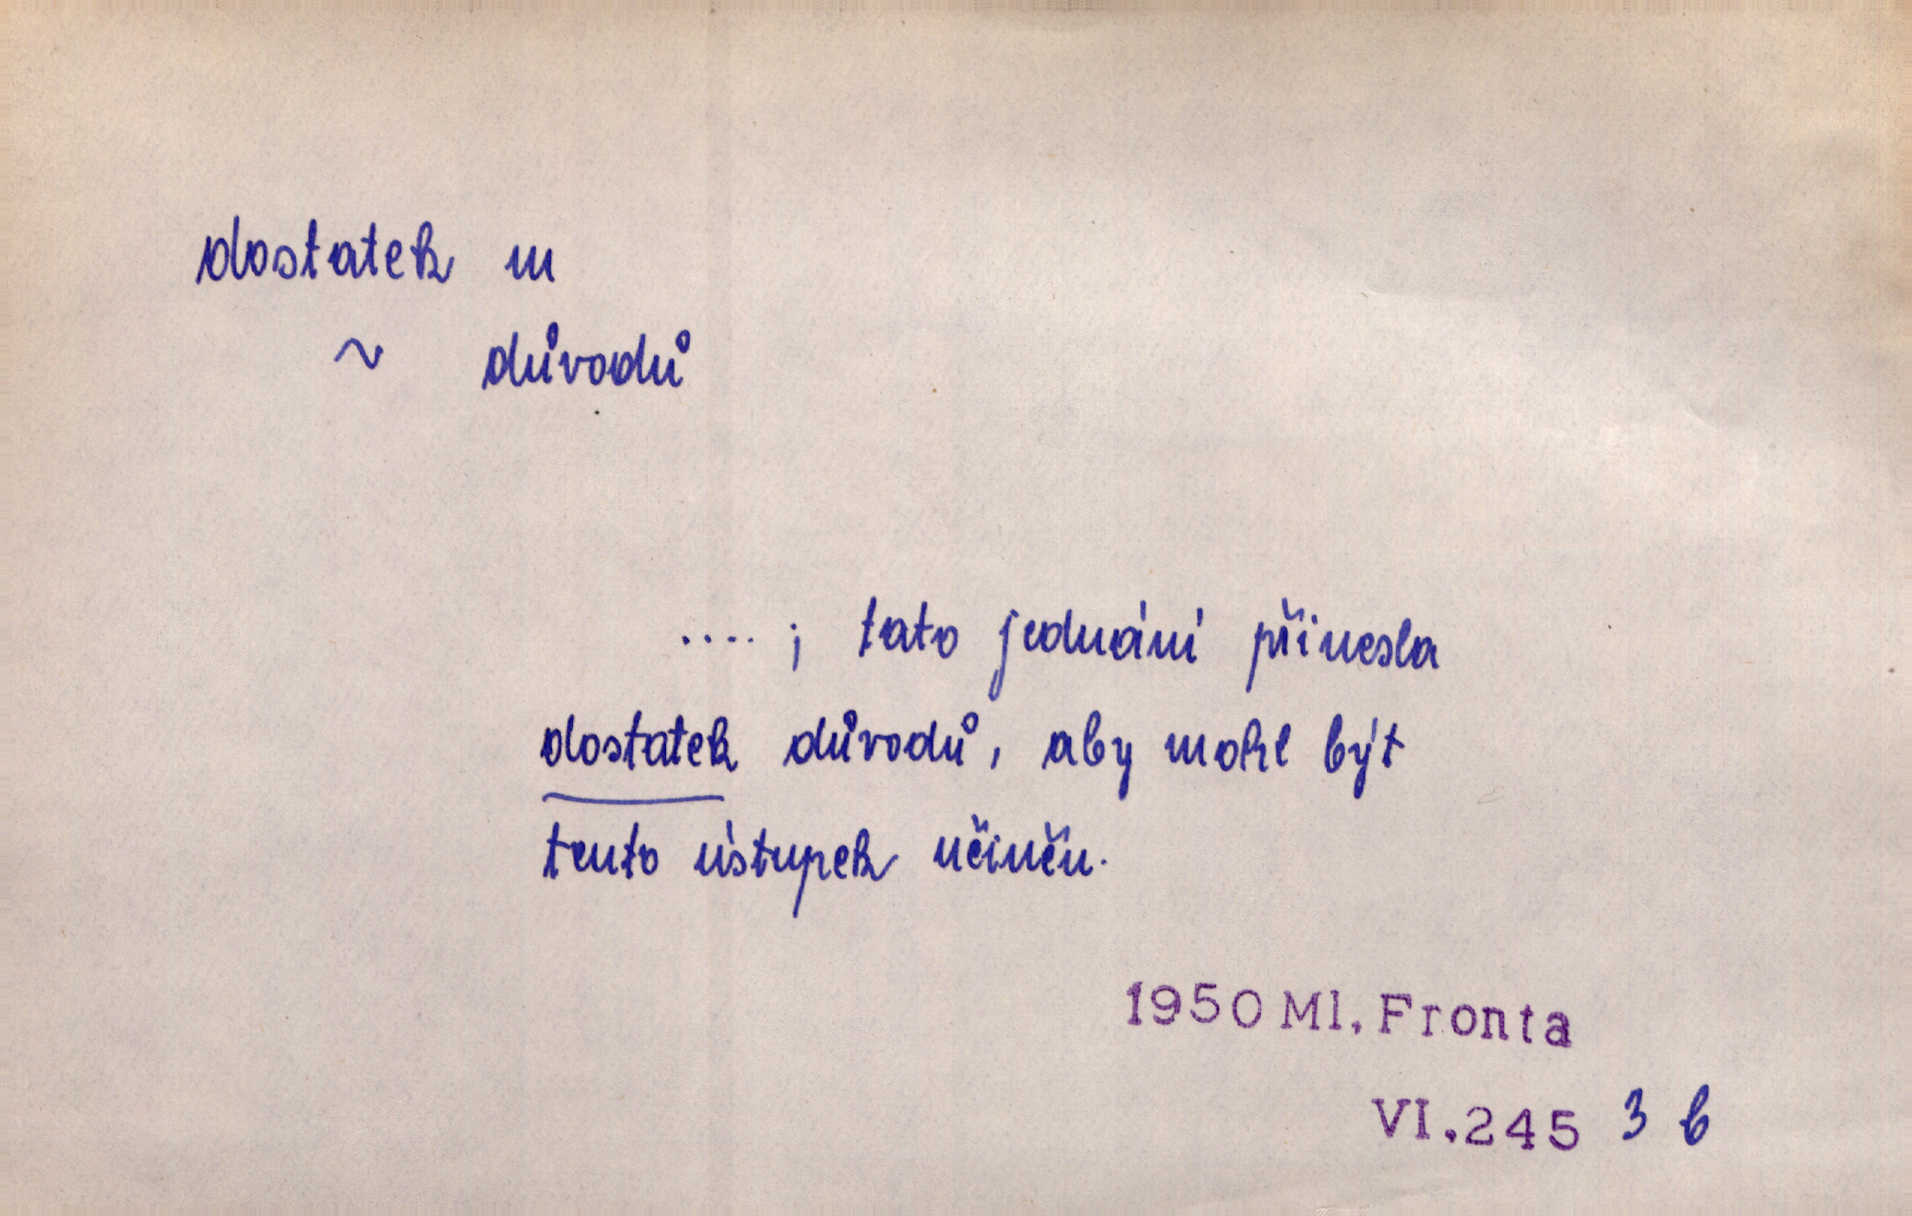 dostatek m
~ důvodů
....; tato jednání přinesla
dostatek důvodů, aby mohl být
tento ústupek učiněn.
1950 Ml. Fronta
VI.245 3 b